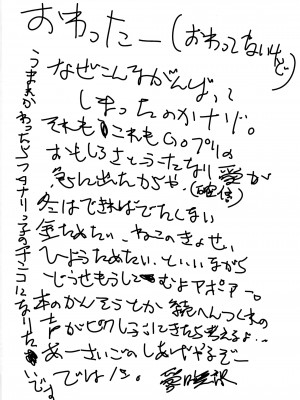 おわったー(おわってないけど)
なぜこんなにがんばって
しまったのかナゾ。
それも これもGoプリの
おもしろさとうーたなり愛が
急に出たからや。(確信)
冬はできればでたくない
金ためたい ねこのきょせい
ひようためたい。といいながら
どうせもうして むよアポアー。
本のかんそうとか 続へんつくれの
声がピクしぶにきたら考えるよ…
あーさいごのしあげやるぞー
ではノシ。
うまれかわったらフタナリっ子のチンコになりたいです